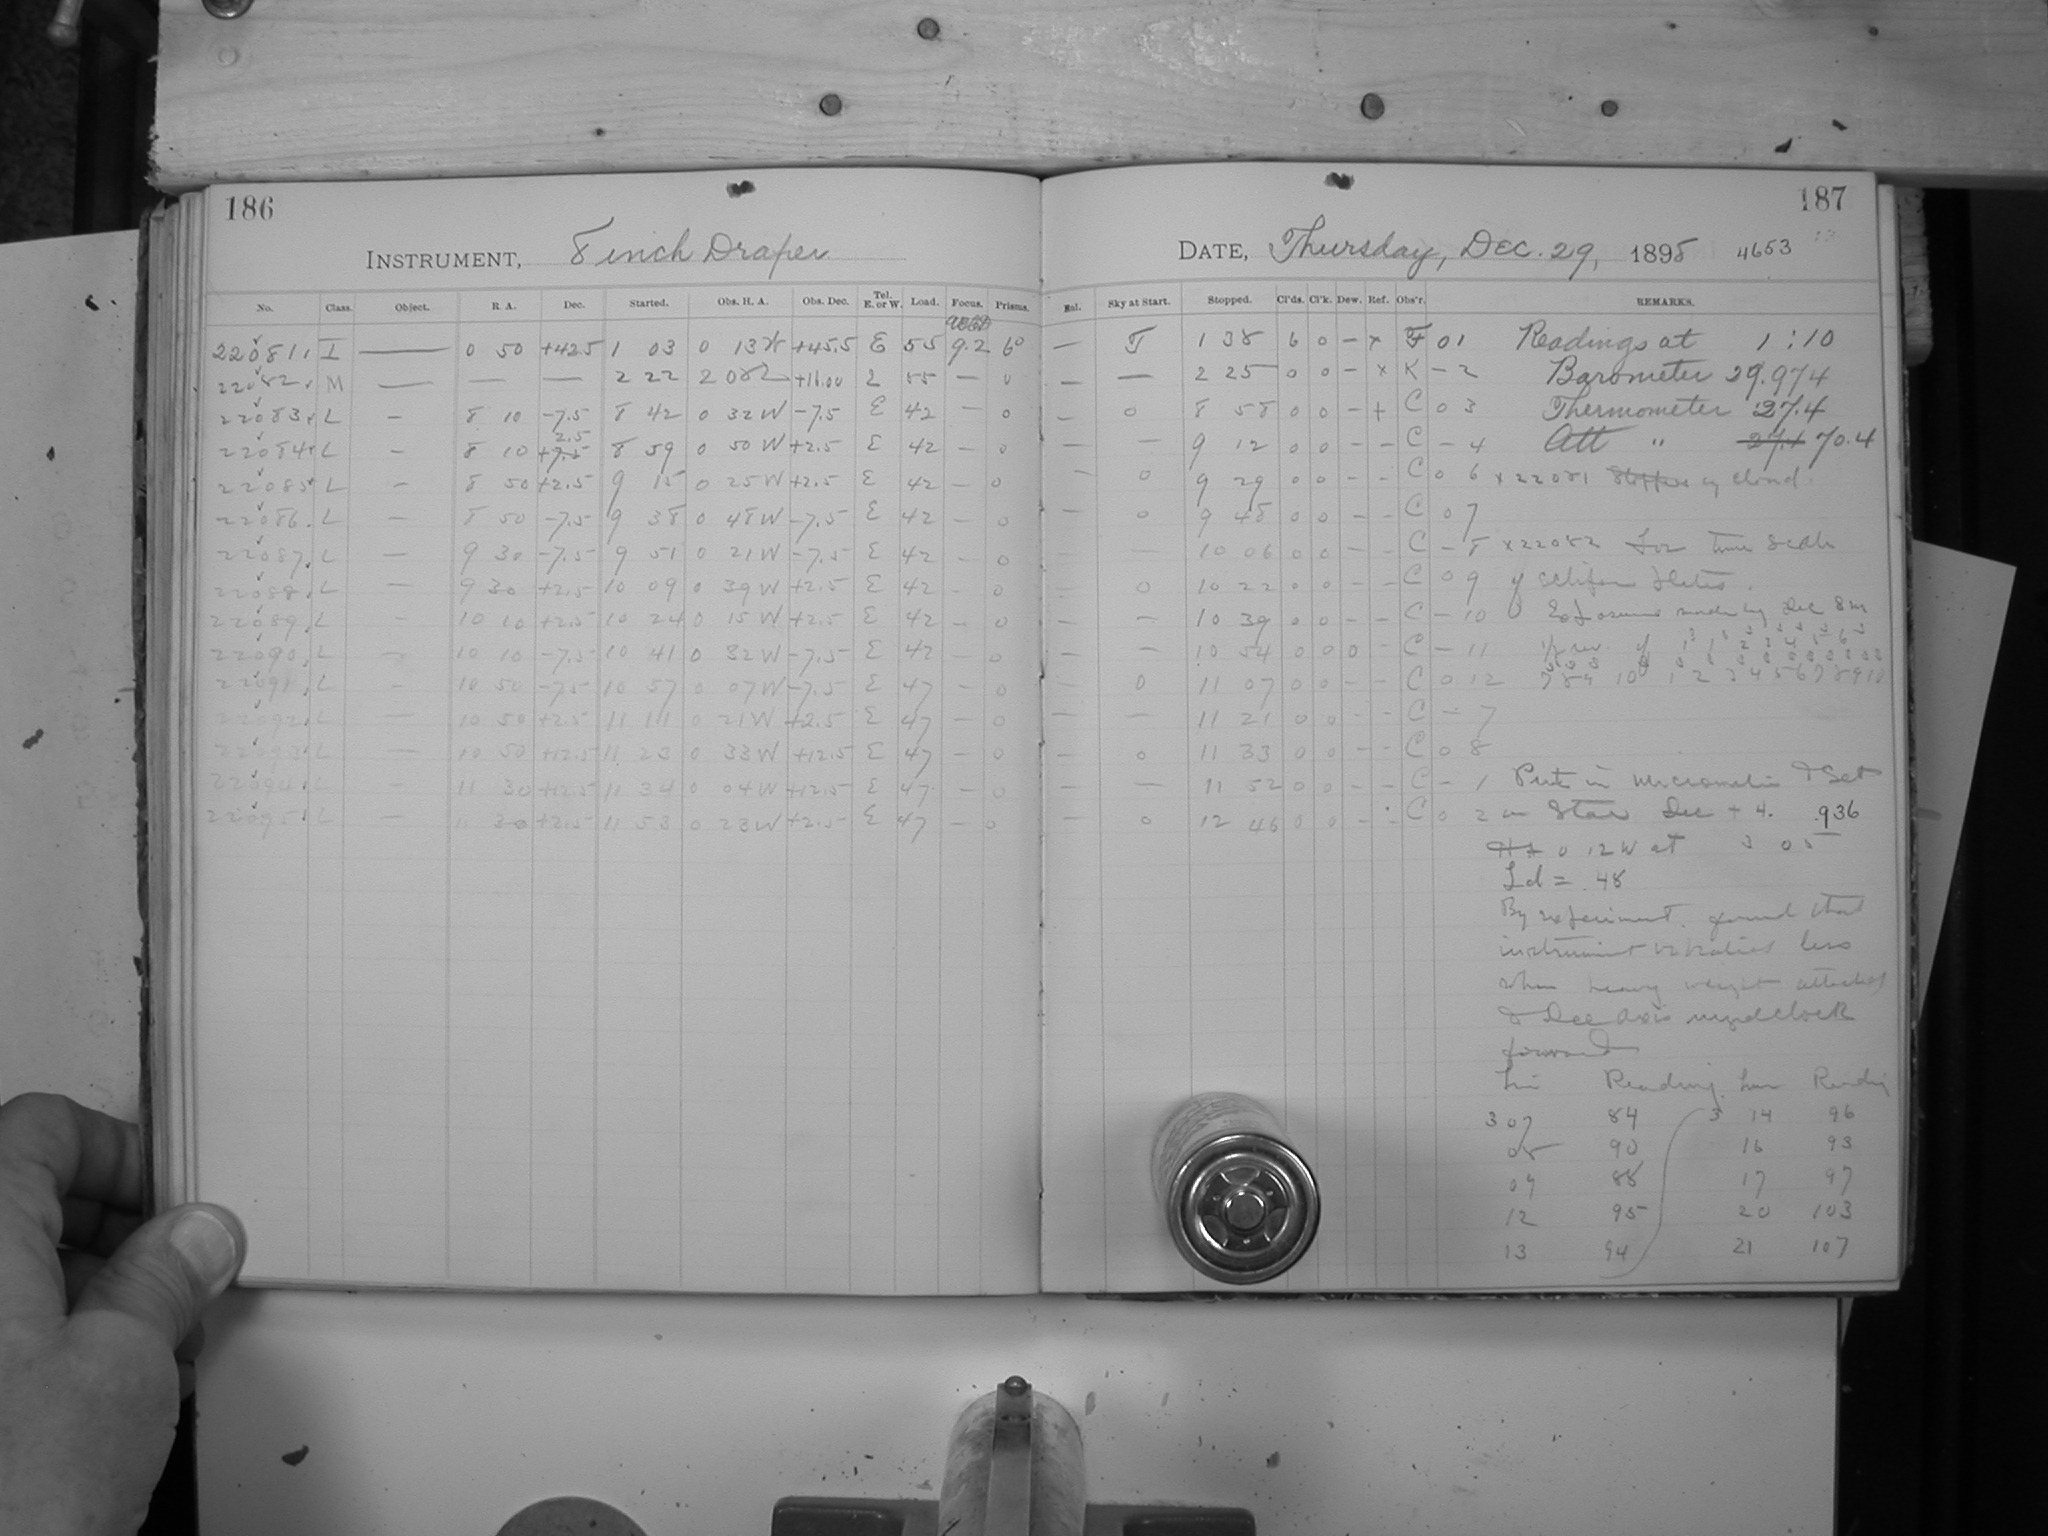 186
INSTRUMENT, 8 inch Draper
No. Class. Object. R. A. Dec. Started. Obs. H. A. Obs. Dec. Tel. E. or W. Load. Focus. Prisms.
22081 I — 0 50 +42.5 1 03 0 13 +45.5 E 55 9.2 6°
22082 M — — — 2 22 2 08 +16.00 E 55 — 0
22083 L — 8 10 -7.5 8 42 0 32 W -7.5 E 42 — 0
2.5
22084 L — 8 10 +7.5 8 59 0 50 W +2.5 E 42 — 0
22085 L — 8 50 +2.5 9 15 0 25 W +2.5 E 42 — 0
22086 L — 8 50 -7.5 9 38 0 48 W -7.5 E 42 — 0
22087 L — 9 30 -7.5 9 51 0 21 W -7.5 E 42 — 0
22088 L — 9 30 +2.5 10 09 0 39 W +2.5 E 42 — 0
22089 L — 10 10 +2.5 10 24 0 15 W +2.5 E 42 — 0
22090 L — 10 10 -7.5 10 41 0 32 W -7.5 E 42 — 0
22091 L — 10 50 -7.5 10 57 0 07 W -7.5 E 47 — 0
22092 L — 10 50 +2.5 11 11 0 21 W +2.5 E 47 — 0
22093 L — 10 50 +12.5 11 23 0 33 W +12.5 E 47 — 0
22094 L — 11 30 +12.5 11 34 0 04 W +12.5 E 47 — 0
22095 L — 11 30 +2.5 11 53 0 23 W +2.5 E 47 — 0
187
DATE, Thursday, Dec. 29, 1898 4653
Bal. Sky at Start. Stopped. Cl'ds. Cl'k. Dew. Ref. Obs'r. REMARKS.
— 1 38 6 0 – x F 0 1 Readings at 1:10
— — 2 25 0 0 – x K – 2 Barometer 29.974
— 0 8 58 0 0 – + C 0 3 Thermometer 27.4
— — 9 12 0 0 – – C – 4 Att " 27.4 70.4
— 0 9 29 0 0 – – C 0 6 x 22081 Stopped by cloud.
— 0 9 48 0 0 – – C 0 7
— — 10 06 0 0 – – C – 8 x 22082 for time scale
— 0 10 22 0 0 – – C 0 9 of
— — 10 39 0 0 – – C – 10 Exposures made by Dec
— — 10 54 0 0 0 – C – 11 rev. of
— 0 11 07 0 0 – – C 0 12
— — 11 21 0 0 – – C – 7
— 0 11 33 0 0 – – C 0 8
— — 11 52 0 0 – – C – 1 Put in & Set
— 0 12 46 0 0 – C 0 2 on Star Dec + 4. 936
HA 0 12 W at 3 05
Ld = .48
By experiment found that
instrument vibrates less
when heavy weight attached
to Dec axis clock
forward
Reading
3 07 84 3 14 96
08 90 16 93
09 88 17 97
12 95 20 103
13 94 21 107